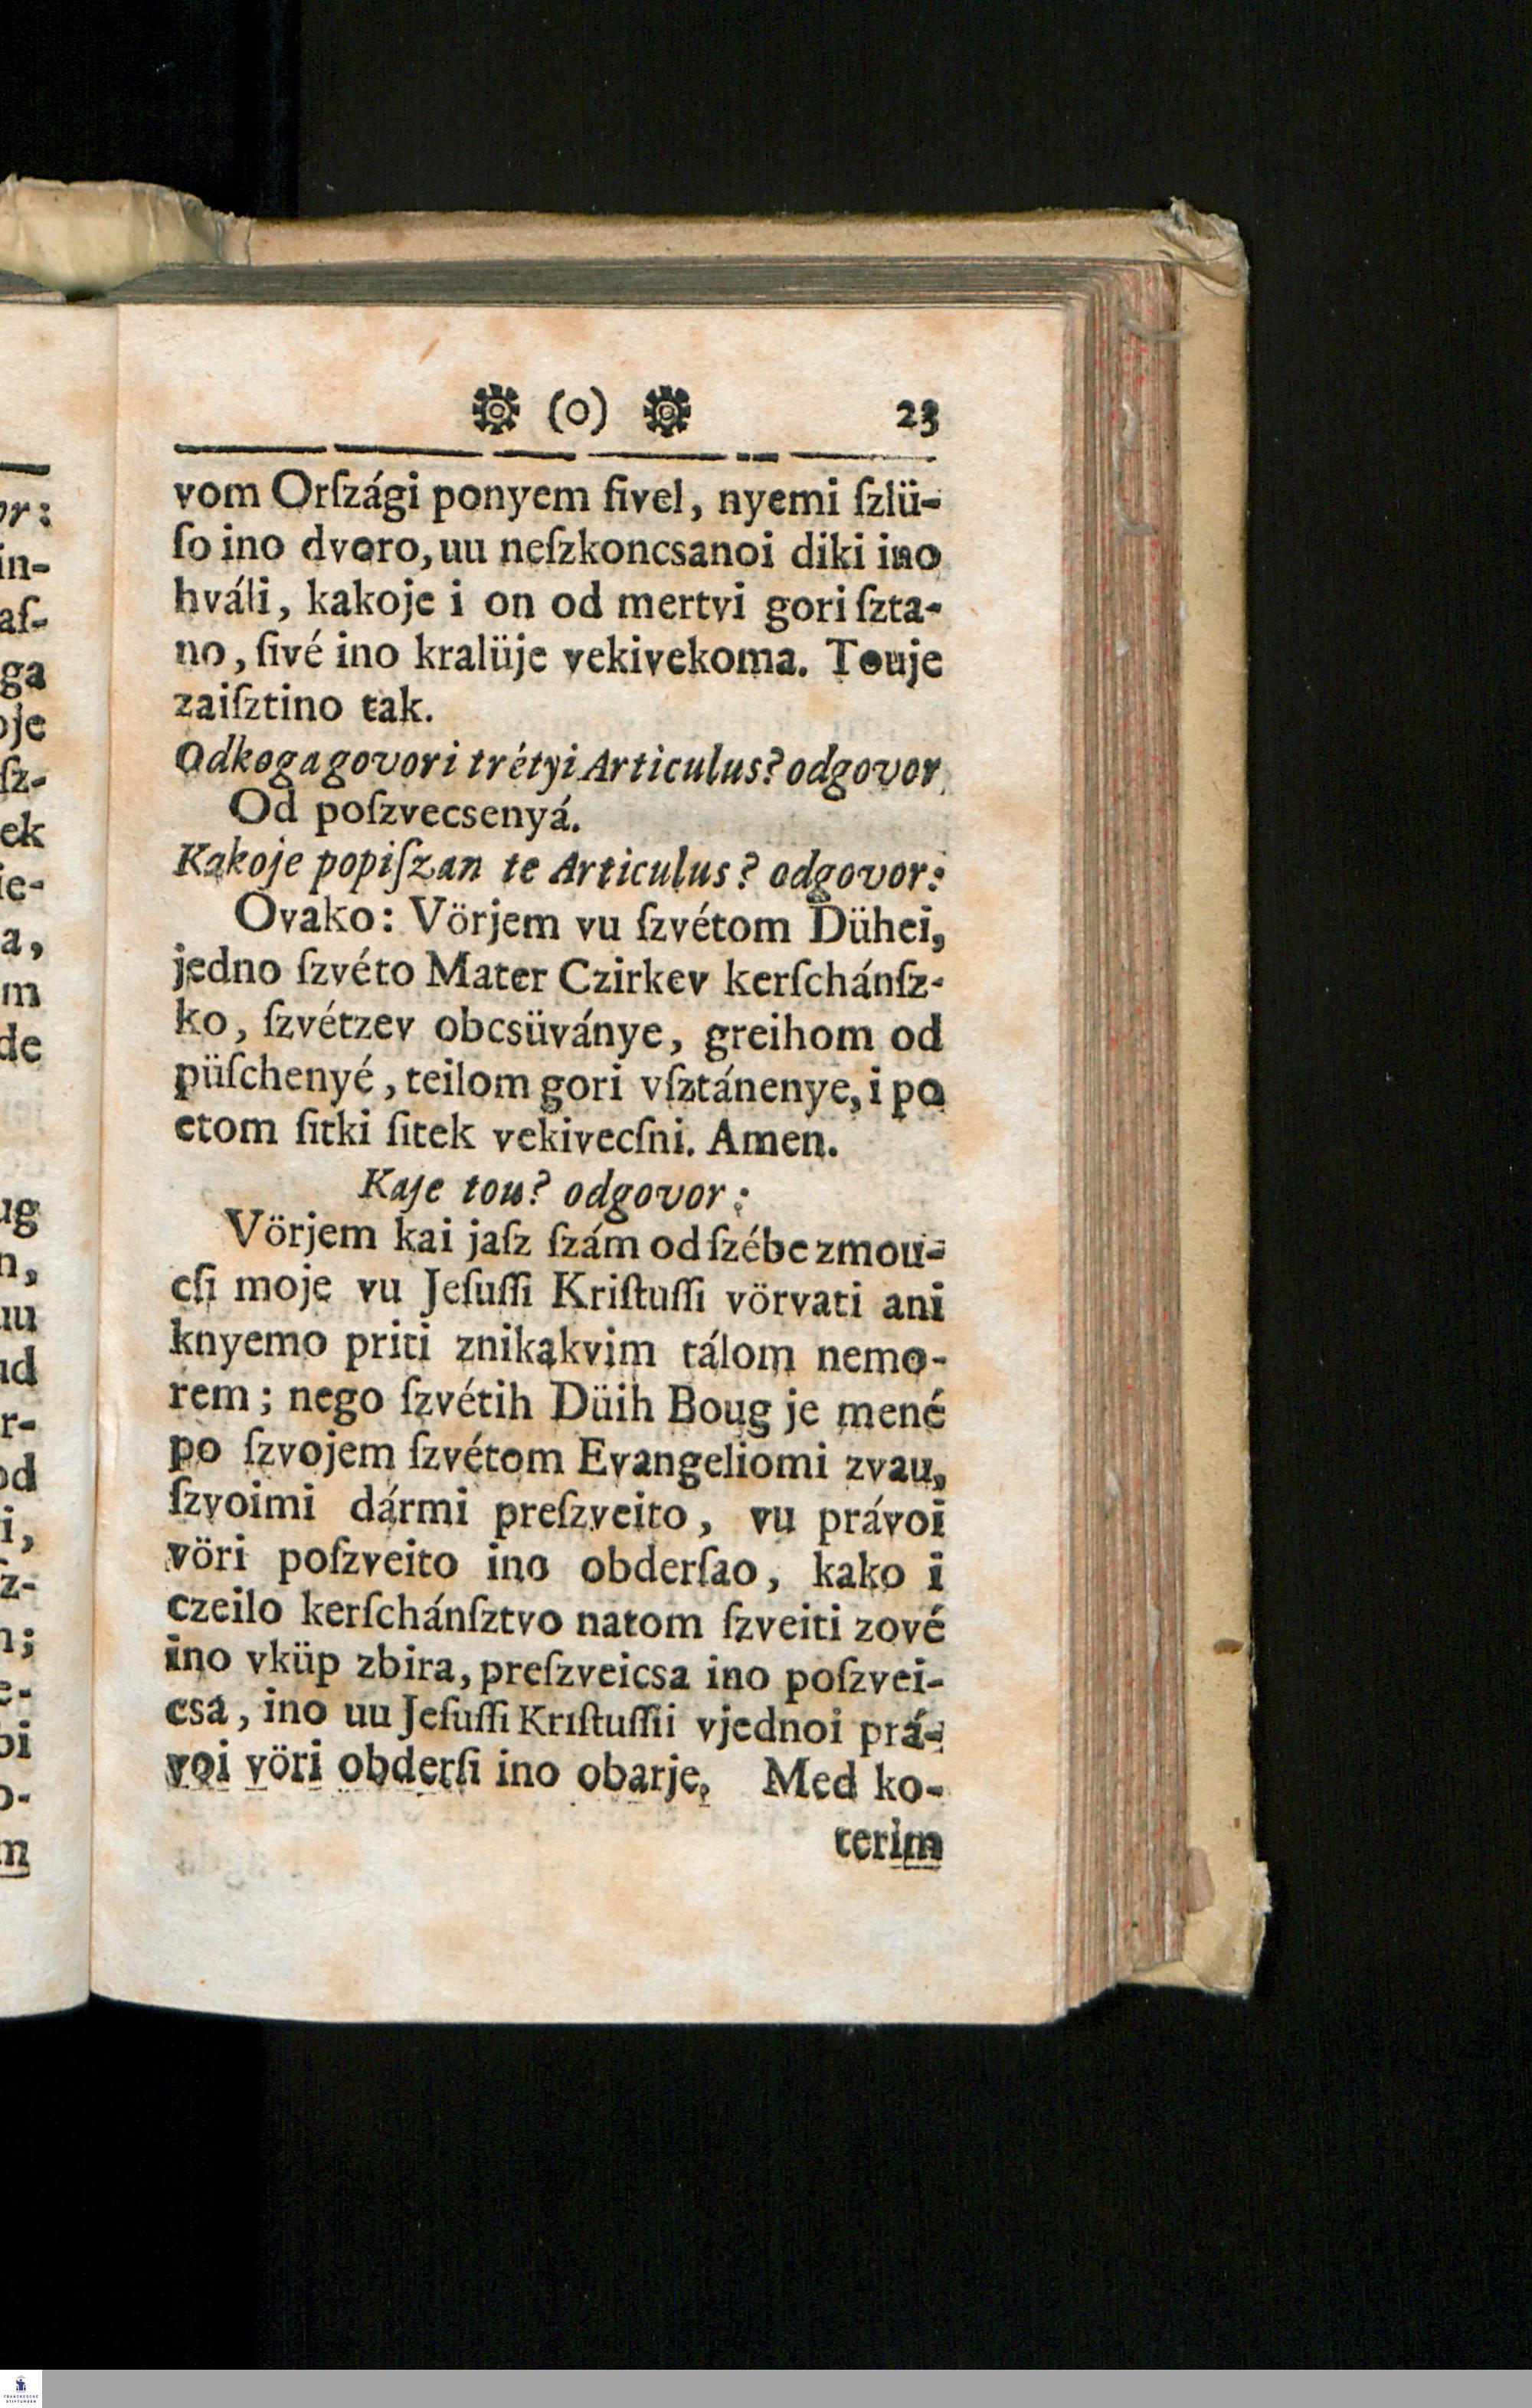 (O) 23
vom Orſzági ponyem ſivel, nyemi ſzlü-
ſo ino dvoro, uu neſzkoncsanoi diki ino
hváli, kakoje i on od mertvi gori ſzta-
no, ſivé ino kralüje vekivekoma. Touje
zaiſztino tak.
Odkoga govori trétyi Articulus? odgovor
Od poſzvecsenyá.
Kakoje popiſzan te Articulus? odgovor:
Ovako: Vörjem vu ſzvétom Dühei,
jedno ſzvéto Mater Czirkev kerſchánſz-
ko, ſzvétzev obcsüványe, greihom od
püſchenyé, teilom gori vſztánenye, i po
etom ſitki ſitek vekivecſni. Amen.
Kaje tou? odgovor:
Vörjem kai jaſz ſzám od ſzébe zmou-
cſi moje vu Jeſuſſi Kriſtuſſi vörvati ani
knyemo priti znikakvim tálom nemo-
rem; nego ſzvétih Düih Boug je mené
po ſzvojem ſzvétom Evangeliomi zvau,
ſzvoimi dármi preſzveito, vu právoi
vöri poſzveito ino obderſao, kako i
czeilo kerſchánſztvo natom ſzveiti zové
ino vküp zbira, preſzveicsa ino poſzvei-
csa, ino uu Jeſuſſi Kriſtuſſii vjednoi prá-
voi vöri obderſi ino obarje, Med ko-
terim
or:
in-
aſ-
ga
oje
ſz-
ek
ie-
a,
m
de
ug
n,
uu
ud
r-
od
i,
z-
n;
e-
oi
o-
m
FRANCKESCHE
STIFTUNGEN